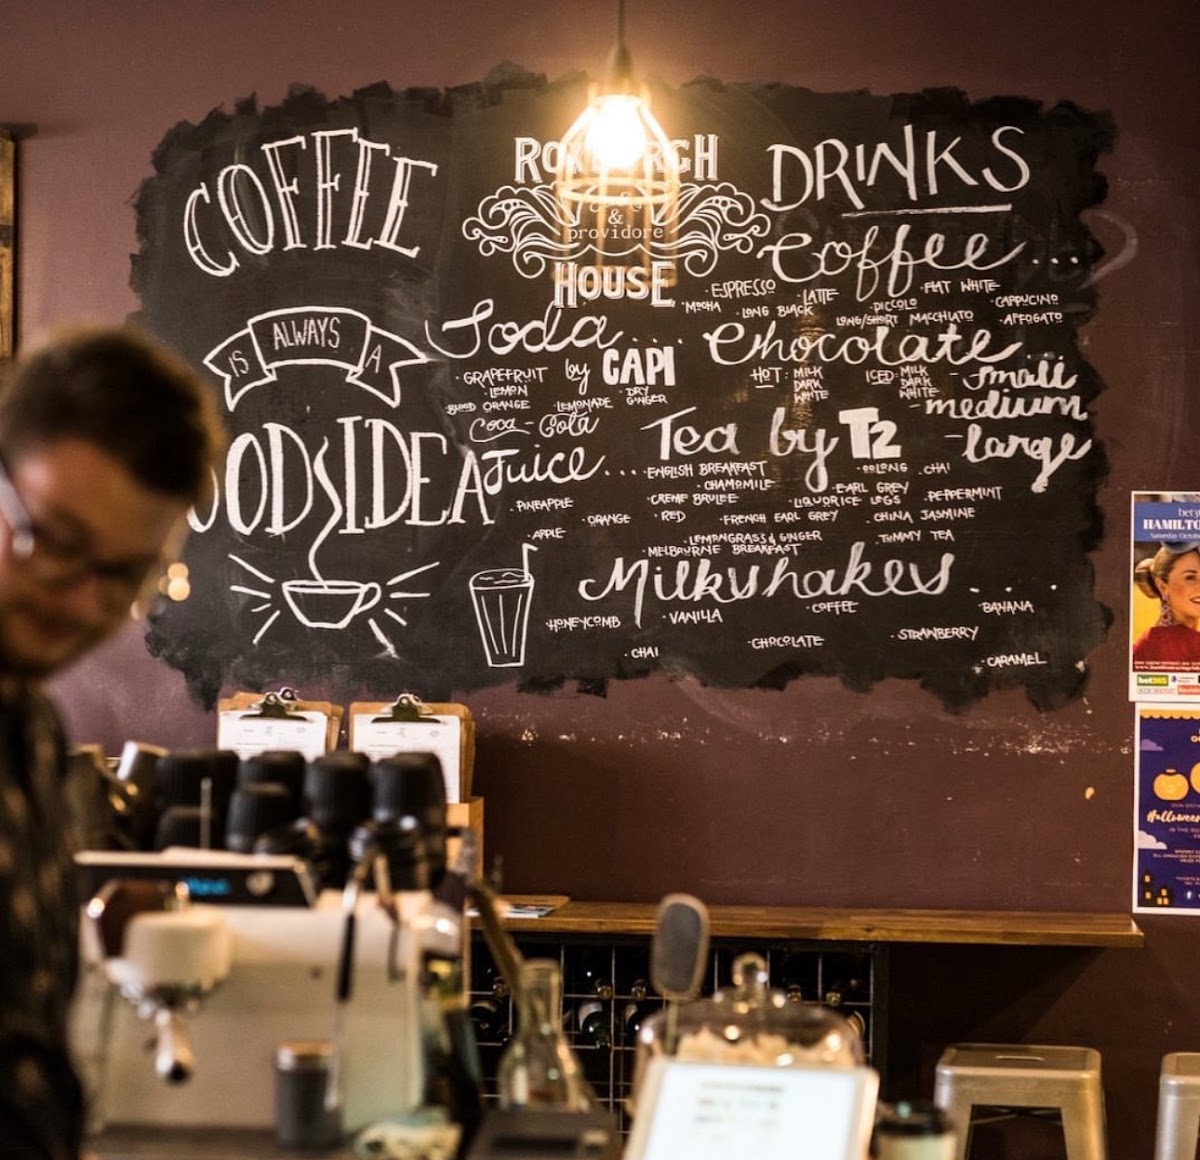 COFFEE
IS ALWAYS A
GOOD IDEA
ROXBURGH
&
providore
HOUSE
DRINKS
Coffee...
• ESPRESSO • LATTE • FLAT WHITE
• MOCHA • LONG BLACK • PICCOLO • CAPPUCINO
LONG/SHORT MACCHIATO • AFFOGATO
Soda.... by CAPI
• GRAPEFRUIT
• LEMON • DRY GINGER
• BLOOD ORANGE • LEMONADE
Coca-Cola
Chocolate...
HOT: MILK
DARK
WHITE
ICED: MILK
DARK
WHITE
- small
- medium
- large
Juice....
• PINEAPPLE
• ORANGE
• APPLE
Tea by T2
• ENGLISH BREAKFAST • OOLONG • CHAI
• CHAMOMILE • EARL GREY
• CREME BRULEE • LIQUORICE LEGS • PEPPERMINT
• RED • FRENCH EARL GREY • CHINA JASMINE
• LEMONGRASS & GINGER • TUMMY TEA
• MELBOURNE BREAKFAST
Milkshakes...
• HONEYCOMB • VANILLA • COFFEE • BANANA
• CHOCOLATE • STRAWBERRY
• CHAI • CARAMEL
HAMILTO
Saturday Octob
bet365
Halloween